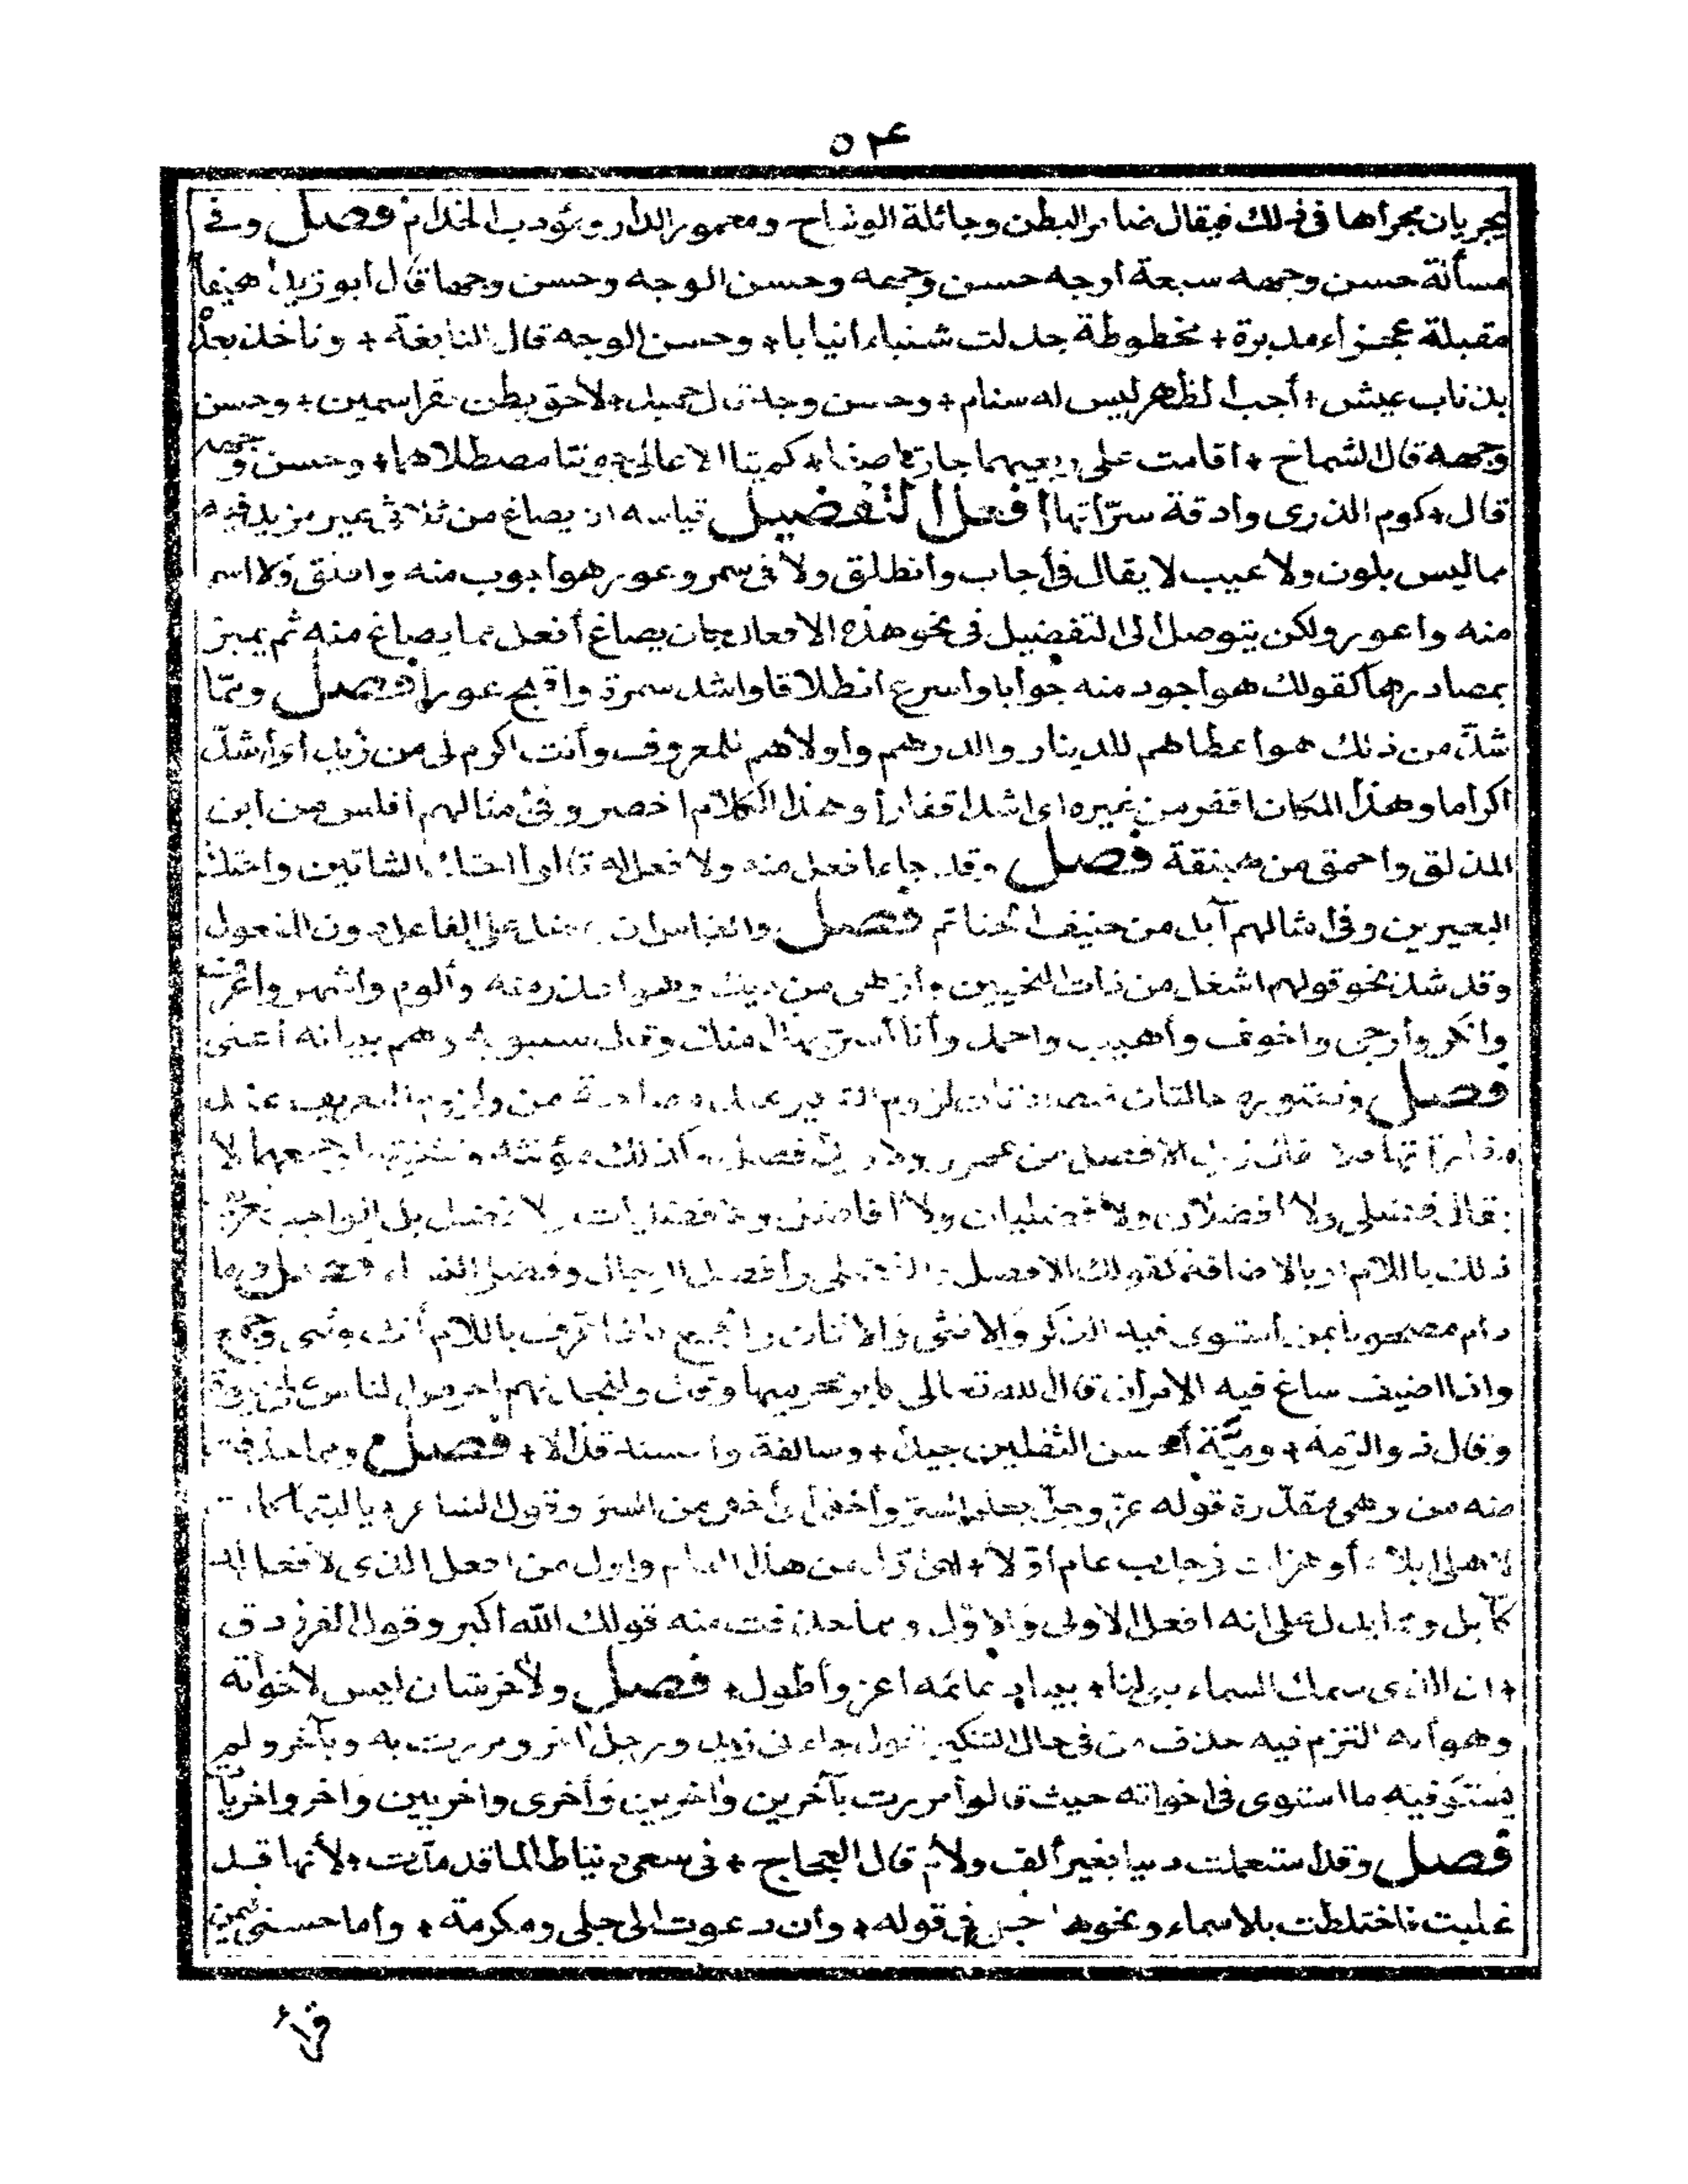 ٥٤
يجريان مجراها في ذلك فيقال ضامر البطن وجائلة الوشاح ومعمور الدار ومؤدب الخدام فصل وفي
مسألة حسن وجهه سبعة أوجه حسن وجهه وحسن الوجه وحسن وجها قال أبو زبيد هيفاء
مقبلة عجزاء مدبرة + مخطوطة جدلت شنباء انيابا + وحسن الوجه قال النابغة + وناخذ بعده
بذناب عيش + أجب الظهر ليس له سنام + وحسن وجه قال حميد + لاحق بطن بقرا سمين + وحسن
وجهه قال الشماخ + اقامت على ربعيهما جارتا صفا + كميتا الاعالى جونتا مصطلاهما + وحسن وجهه
قال + كوم الذرى وادقة سراتها أفعل التفضيل قياسه ان يصاغ من ثلاثى غير مزيد فيه
مما ليس بلون ولا عيب لا يقال في أجاب وأنطلق ولا في سمر وعور هو أجوب منه واطلق ولا اسمر
منه واعور ولكن يتوصل الى التفضيل في نحو هذه الافعال بان يصاغ أفعل مما يصاغ منه ثم يميز
بمصادرها كقولك هو أجود منه جوابا واسرع انطلاقا واشد سمرة واقبح عورا فصل ومما
شذ من ذلك هو أعطاهم للدينار والدرهم وأولاهم للمعروف وأنت اكرم لى من زيد اى أشد
اكراما وهذا المكان اقفر من غيره اى اشد اقفارا وهذا الكلام اخصر وفي أمثالهم أفلس من ابن
المذلق واحمق من هبنقة فصل وقد جاء أفعل منه ولا فعل له قالوا أحنك الشاتين واحنك
البعيرين وفي أمثالهم آبل من حنيف الحناتم فصل والقياس ان يفضل على الفاعل دون المفعول
وقد شذ نحو قولهم اشغل من ذات النحيين وأزهى من ديك وهو أعذر منه وألوم واشهر وأعرف
وانكر وأرجى واخوف وأهيب واحمد وأنا أسر بهذا منك وقال سيبويه وهم ببيانه أعنى
فصل وتعتوره حالتان متضادتان لزوم التنكير عند مصاحبة من ولزوم التعريف عند
مفارقتها فلا يقال زيد الافضل من عمرو ولا زيد أفضل وكذلك مؤنثه وتثنيتهما وجمعهما لا
يقال فضلى ولا افضلان ولا فضليان ولا أفاضل ولا فضليات ولا فضل بل الواجب تعريف
ذلك باللام او بالاضافة كقولك الافضل والفضلى وأفضل الرجال وفضلى النساء فصل وما
دام مصحوبا بمن استوى فيه الذكر والانثى والاثنان والجمع فاذا عرف باللام أنث وثنى وجمع
واذا اضيف ساغ فيه الامران قال الله تعالى اكابر مجرميها وقال ولتجدنهم احرص الناس على حيوة
وقال ذو الرمة + ومية أحسن الثقلين جيدا + وسالفة واحسنه قذالا + فصل ومما حذفت
منه من وهى مقدرة قوله عز وجل يعلم السر وأخفى أى أخفى من السر وقول الشاعر + يا ليتها كانت
لاهلى ابلا + أو هزلت في جدب عام أولا + اى أول من هذا العام وأول من افعل الذى لا فعل له
كآبل ومما يدل على انه افعل الاولى والاول ومما حذفت منه قولك الله أكبر وقول الفرزدق
+ ان الذى سمك السماء بنى لنا + بيتا دعائمه اعز وأطول + فصل ولآخر شان ليس لاخواته
وهو أنه التزم فيه حذف من في حال التنكير تقول جاءنى زيد ورجل آخر ومررت به وبآخر ولم
يستو فيه ما استوى في اخواته حيث قالوا مررت بآخرين وآخرين وأخرى واخريين وأخر واخريات
فصل وقد استعملت دنيا بغير ألف ولام قال العجاج + في سعى دنيا طالما قد مدت + لأنها قد
غلبت فاختلطت بالاسماء ونحوها جلى في قوله + وان دعوت الى جلى ومكرمة + وأما حسنى فيمن
قرأ